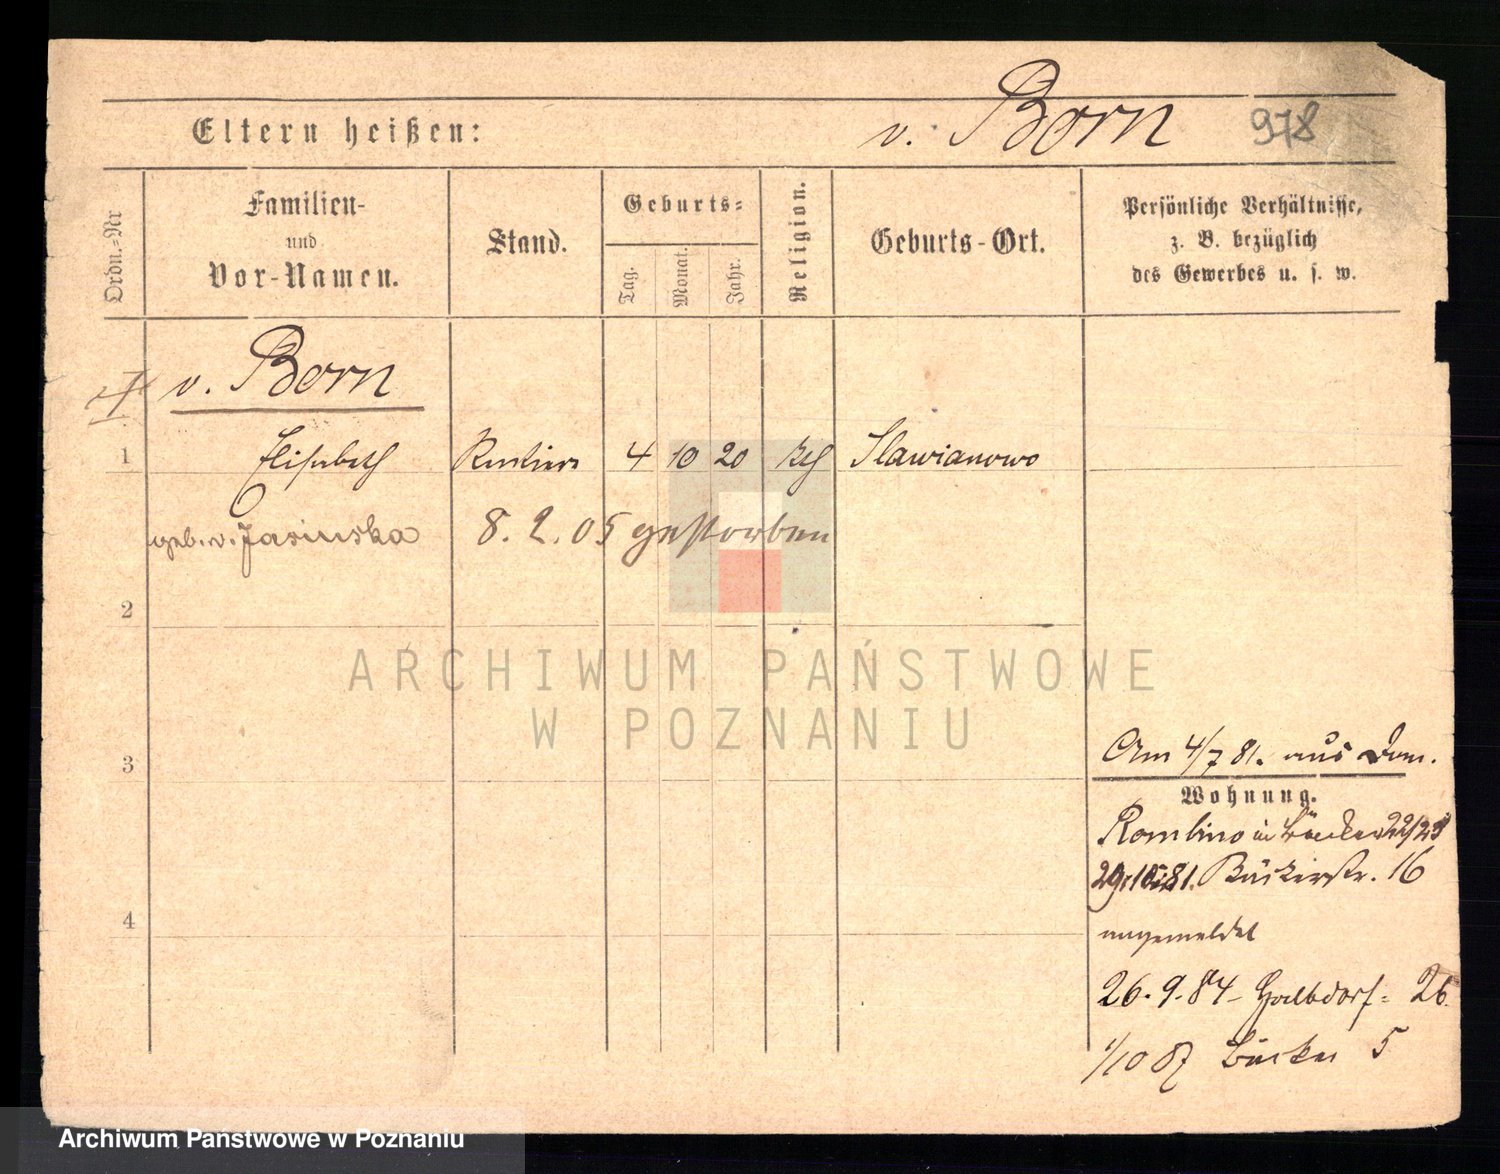 Eltern heißen: v. Born 978
Ordn.-Nr
Familien-
und
Vor-Namen.
Stand.
Geburts-
Tag. Monat. Jahr.
Religion.
Geburts-Ort.
Persönliche Verhältnisse,
z. B. bezüglich
des Gewerbes u. s. w.
v. Born
1 Elisabeth Rentiere 4 10 20 Slawianowo
geb. v. Jasinska 8. 2. 05 gestorben
2
ARCHIWUM PAŃSTWOWE
W POZNANIU
3
Am 4/7 81. aus Dom.
Wohnung.
Rombino in Bäcker 22/23
29.10.81. Bäckerstr. 16
4
angemeldet
26. 9. 84 - Halbdorf- 26.
1/10 87 Bäcker 5
Archiwum Państwowe w Poznaniu